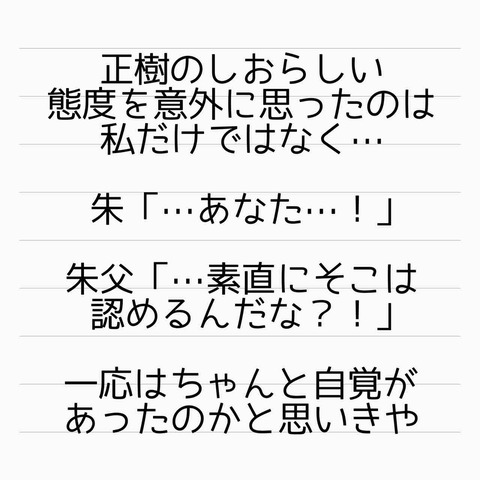 正樹のしおらしい
態度を意外に思ったのは
私だけではなく…
朱「…あなた…！」
朱父「…素直にそこは
認めるんだな？！」
一応はちゃんと自覚が
あったのかと思いきや